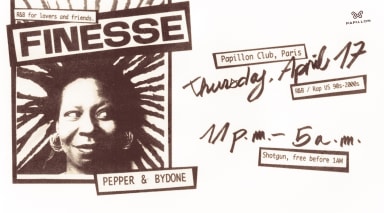 R&B for lovers and friends.
FINESSE
PEPPER & BYDONE
PAPILLON
Papillon Club, Paris
Thursday, April 17
R&B / Rap US 90s-2000s
11 p.m. – 5 a.m.
Shotgun, free before 1AM